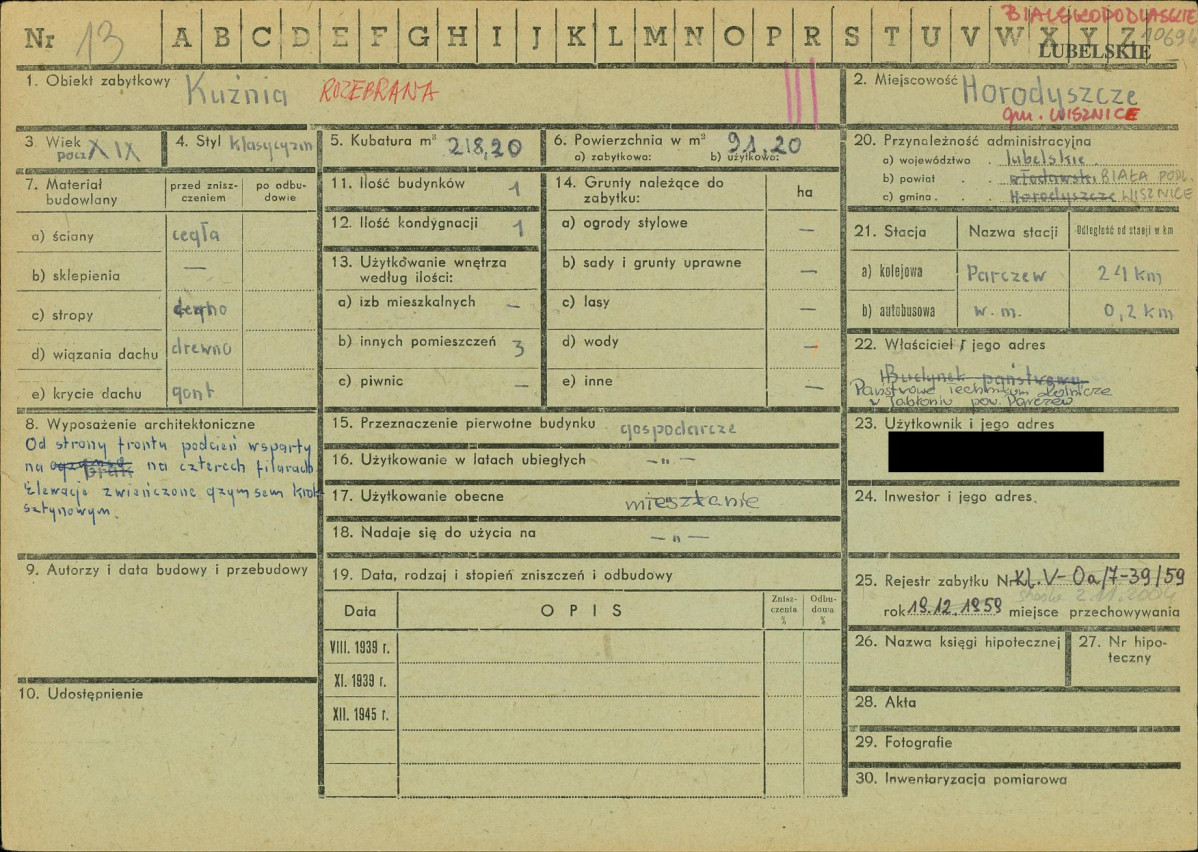 BIALSKOPODLASKIE
Nr 13 A B C D E F G H I J K L M N O P R S T U V W X Y Z
LUBELSKIE
1. Obiekt zabytkowy Kuźnia ROZEBRANA III
2. Miejscowość Horodyszcze
gm. WISZNICE
3. Wiek pocz XIX
4. Styl klasycyzm
5. Kubatura m³ 218,20
6. Powierzchnia w m² 91,20
a) zabytkowa: b) użytkowa:
7. Materiał budowlany
przed zniszczeniem
po odbudowie
a) ściany cegła
b) sklepienia —
c) stropy drewno
d) wiązania dachu drewno
e) krycie dachu gont
8. Wyposażenie architektoniczne
Od strony frontu podcień wsparty
na na czterech filarach
Elewacje zwieńczone gzymsem krok-
sztynowym.
9. Autorzy i data budowy i przebudowy
10. Udostępnienie
11. Ilość budynków 1
12. Ilość kondygnacji 1
13. Użytkowanie wnętrza
według ilości:
a) izb mieszkalnych –
b) innych pomieszczeń 3
c) piwnic –
14. Grunty należące do
zabytku:
ha
a) ogrody stylowe –
b) sady i grunty uprawne –
c) lasy –
d) wody –
e) inne –
15. Przeznaczenie pierwotne budynku gospodarcze
16. Użytkowanie w latach ubiegłych —"—
17. Użytkowanie obecne mieszkanie
18. Nadaje się do użycia na —"—
19. Data, rodzaj i stopień zniszczeń i odbudowy
Data
OPIS
Zniszczenia %
Odbudowa %
VIII. 1939 r.
XI. 1939 r.
XII. 1945 r.
20. Przynależność administracyjna
a) województwo . lubelskie .
b) powiat . . włodawski BIAŁA PODL.
c) gmina . . . Horodyszcze WISZNICE
21. Stacja
Nazwa stacji
Odległość od stacji w km
a) kolejowa Parczew 24 km
b) autobusowa w. m. 0,2 km
22. Właściciel i jego adres
Budynek państwowy
Państwowe Technikum Rolnicze
w Jabłoniu pow. Parczew
23. Użytkownik i jego adres
24. Inwestor i jego adres
25. Rejestr zabytku Nr Kl.V-Oa/7-39/59
rok 19.12.1959 miejsce przechowywania
26. Nazwa księgi hipotecznej
27. Nr hipoteczny
28. Akta
29. Fotografie
30. Inwentaryzacja pomiarowa